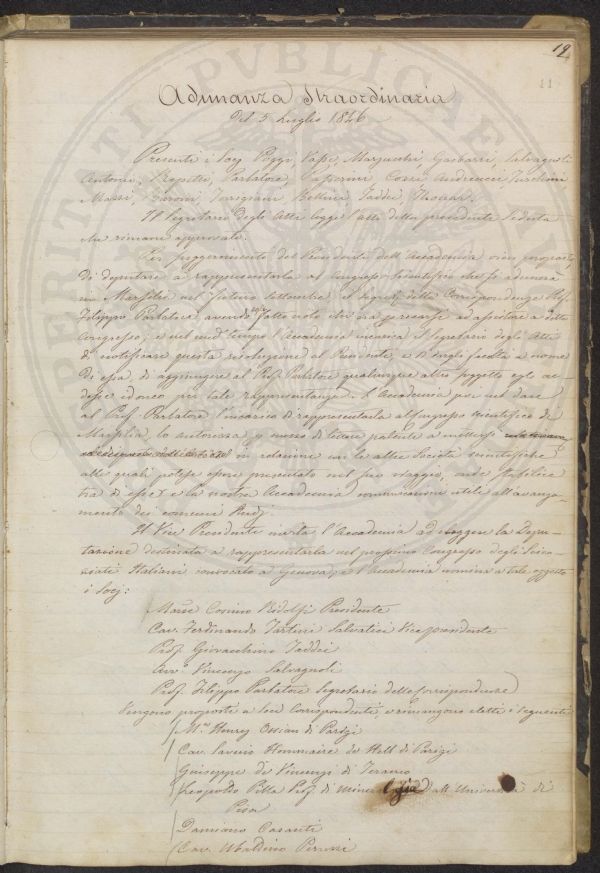 19
11
Adunanza Straordinaria
del 5 Luglio 1846
Presenti i Socj Poggi, Marzucchi Gasbarri, Salvagnoli
Antonio, Repetti, Parlatore, Capecchi Andreucci
Targioni, Bettini, Taddei,
Il Segretario degli Atti legge l'atto della precedente seduta
che rimane approvato.
Per suggerimento del Presidente dell'Accademia vien proposto
di deputare a rappresentarla al Congresso Scientifico che si adunerà
in Marsilia nel futuro Settembre il Segret. della Corrispondenza Prof.
Filippo Parlatore, avendo fatto noto che era per assistere a detto
Congresso; e nel med. tempo l'Accademia incarica il Segretario degli Atti
di notificare questa resoluzione al Presidente, e di dargli facoltà a nome
di essa, di aggiungere al Prof. Parlatore qualunque altro soggetto egli cre
desse idoneo per tale rappresentanza. L'Accademia poi nel dare
al Prof. Parlatore l'incarico di rappresentarla al Congresso Scientifico di
Marsilia, lo autorizza per mezzo di lettere patente a mettersi
in relazione con le altre Società scientifiche
alle quali potesse essere presentato nel suo viaggio, onde stabilire
tra di esse e la nostra Accademia comunicazioni utili all'avanza-
mento dei comuni studj.
Il Vice Presidente invita l'Accademia ad eleggere la Depu-
tazione destinata a rappresentarla nel prossimo Congresso degli Scien-
ziati Italiani convocato a Genova, e l'Accademia nomina a tale oggetto
i Socj:
March. Cosimo Ridolfi Presidente
Cav. Ferdinando Tartini Salvatici Vicepresidente
Prof. Giovacchino Taddei
Avv. Vincenzo Salvagnoli
Prof. Filippo Parlatore Segretario delle Corrispondenze
Vengono proposti a Socj Corrispondenti, e rimangono eletti i seguenti
Mr. Henry Ossian di Parigi
Cav. Saverio Hommaire de Hell di Parigi
Giuseppe de Vincenzi di Teramo
Leopoldo Pilla Prof. di Mineralogia all'Università di
Pisa
Damiano Casanti
Cav. Ubaldino Peruzzi